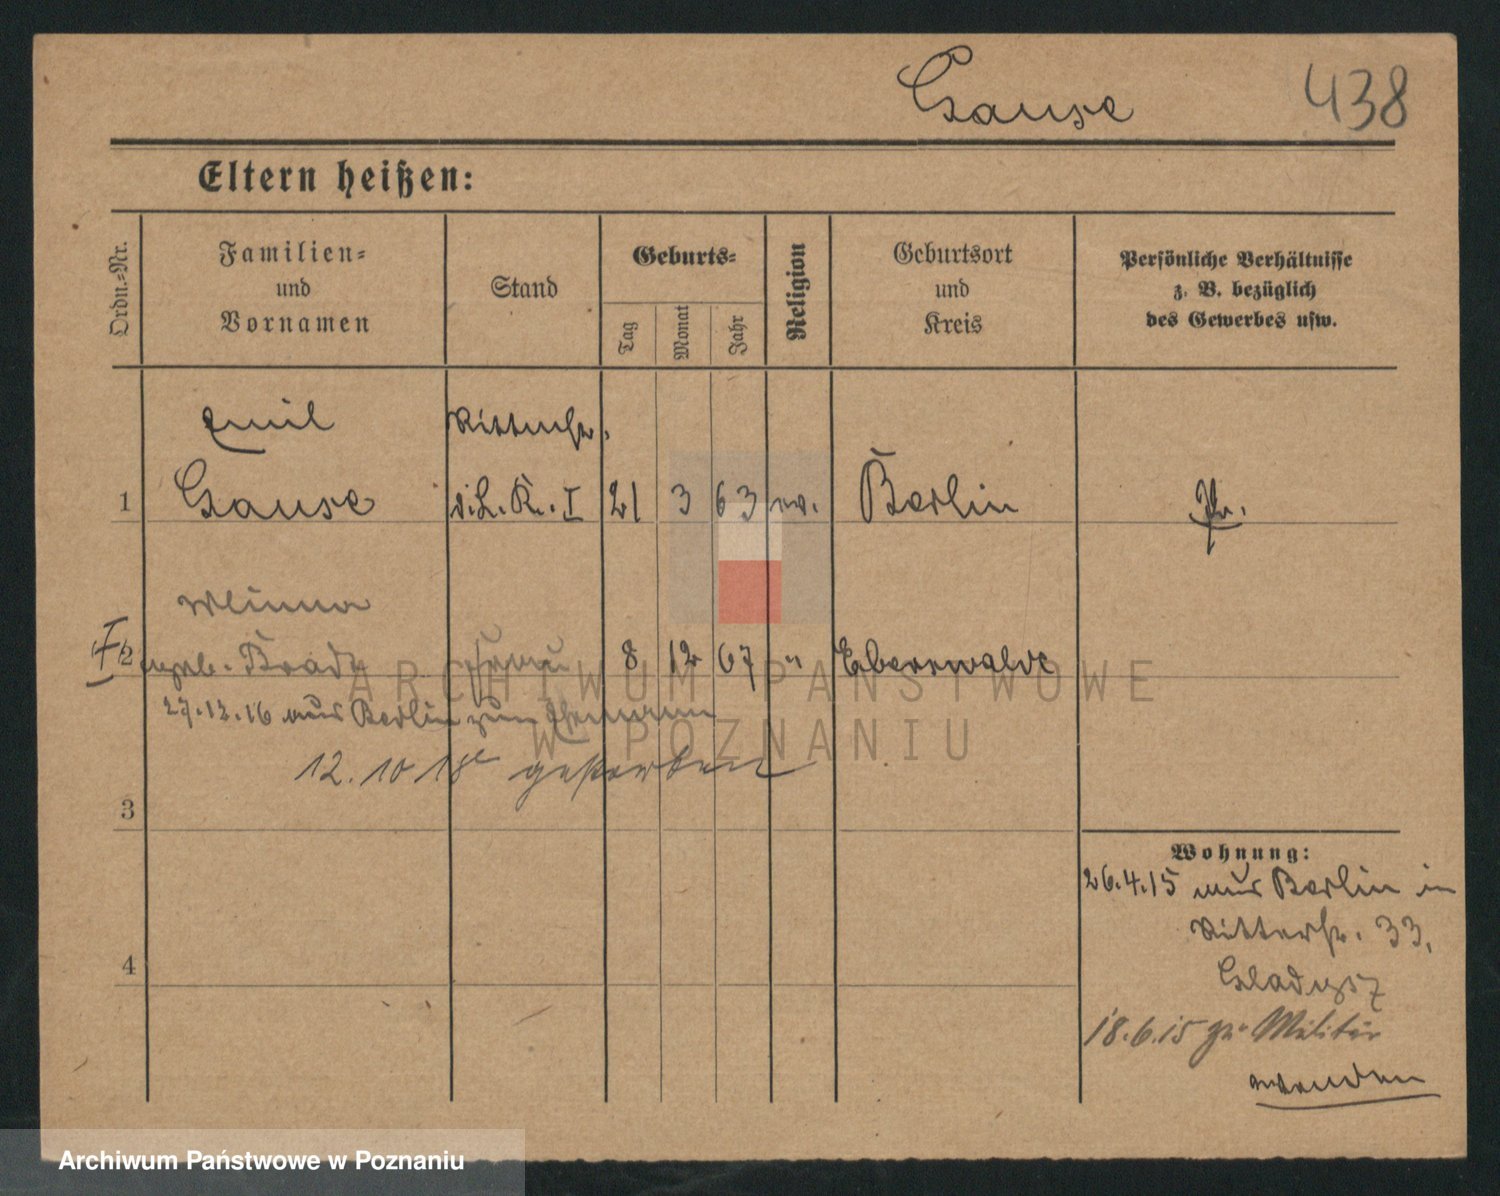 Gause 438
Eltern heißen:
Ordn.-Nr.
Familien-
und
Vornamen
Stand
Geburts-
Tag
Monat
Jahr
Religion
Geburtsort
und
Kreis
Persönliche Verhältnisse
z. B. bezüglich
des Gewerbes usw.
Emil
1 Gause d. L. K. I 21 3 63 ev. Berlin Pr.
2 geb. Frau 8 12 67 " Eberswalde
27.12.16 aus Berlin zum Ehemann
12.10.18 gestorben
3
4
Wohnung:
26.4.15 aus Berlin in
Ritterstr. 33,
Gladysz
18.6.15 zu Militär
wenden
ARCHIWUM PAŃSTWOWE
W POZNANIU
Archiwum Państwowe w Poznaniu